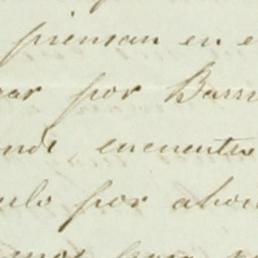 piensan en e
ar por Barr
nde encuentre
rlo por ahor